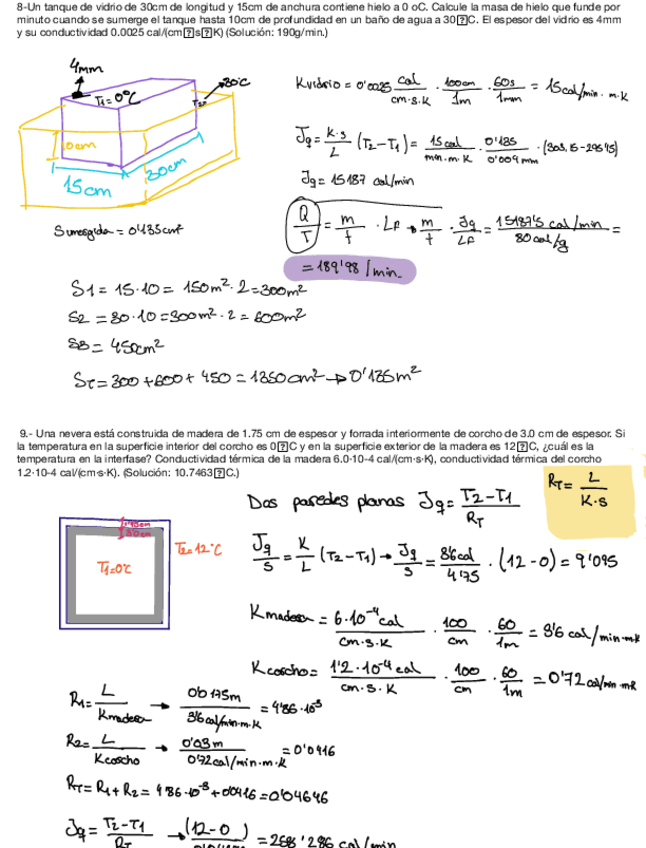 8-Un tanque de vidrio de 30cm de longitud y 15cm de anchura contiene hielo a 0 oC. Calcule la masa de hielo que funde por
minuto cuando se sumerge el tanque hasta 10cm de profundidad en un baño de agua a 30⍰C. El espesor del vidrio es 4mm
y su conductividad 0.0025 cal/(cm⍰s⍰K) (Solución: 190g/min.)
4mm
T1=0°C
30°C
10cm
15cm
30cm
Sumergida = 0'135cm²
Kvidrio = 0'0025 cal/cm·s·K · 100cm/1m · 60s/1mm = 15cal/min·m·K
Jq = K·s/L (T2-T1) = 15cal/min·m·K · 0'135/0'004mm · (303,15-
Jq = 15187 cal/min
Q/T = m/t · LF → m/t · Jq/LF = 15187'5 cal/min / 80cal/g =
= 189'98 /min.
S1 = 15·10 = 150m²·2 = 300m²
S2 = 30·10 = 300m²·2 = 600m²
S3 = 450cm²
ST = 300+600+450 = 1350cm² → 0'135m²
9.- Una nevera está construida de madera de 1.75 cm de espesor y forrada interiormente de corcho de 3.0 cm de espesor. Si
la temperatura en la superficie interior del corcho es 0⍰C y en la superficie exterior de la madera es 12⍰C, ¿cuál es la
temperatura en la interfase? Conductividad térmica de la madera 6.0·10-4 cal/(cm·s·K), conductividad térmica del corcho
1.2·10-4 cal/(cm·s·K). (Solución: 10.7463⍰C.)
Dos paredes planas Jq = T2-T1/RT
RT = L/K·s
T1=0°C
T2=12°C
Jq/s = K/L (T2-T1) → Jq/s = 3'6cal/4'75 · (12-0) = 9'095
Kmadera = 6·10⁻⁴cal/cm·s·K · 100/cm · 60/1m = 3'6 cal/min·m·K
Kcorcho = 1'2·10⁻⁴cal/cm·s·K · 100/cm · 60/1m = 0'72 cal/min mK
R1 = L/Kmadera → 0'0175m/3'6cal/min·m·K = 4'86·10⁻³
R2 = L/Kcorcho → 0'03m/0'72cal/min·m·K = 0'0416
RT = R1+R2 = 4'86·10⁻³+0'0416 = 0'04646
Jq = T2-T1/RT → (12-0) = 258'286 cal/min